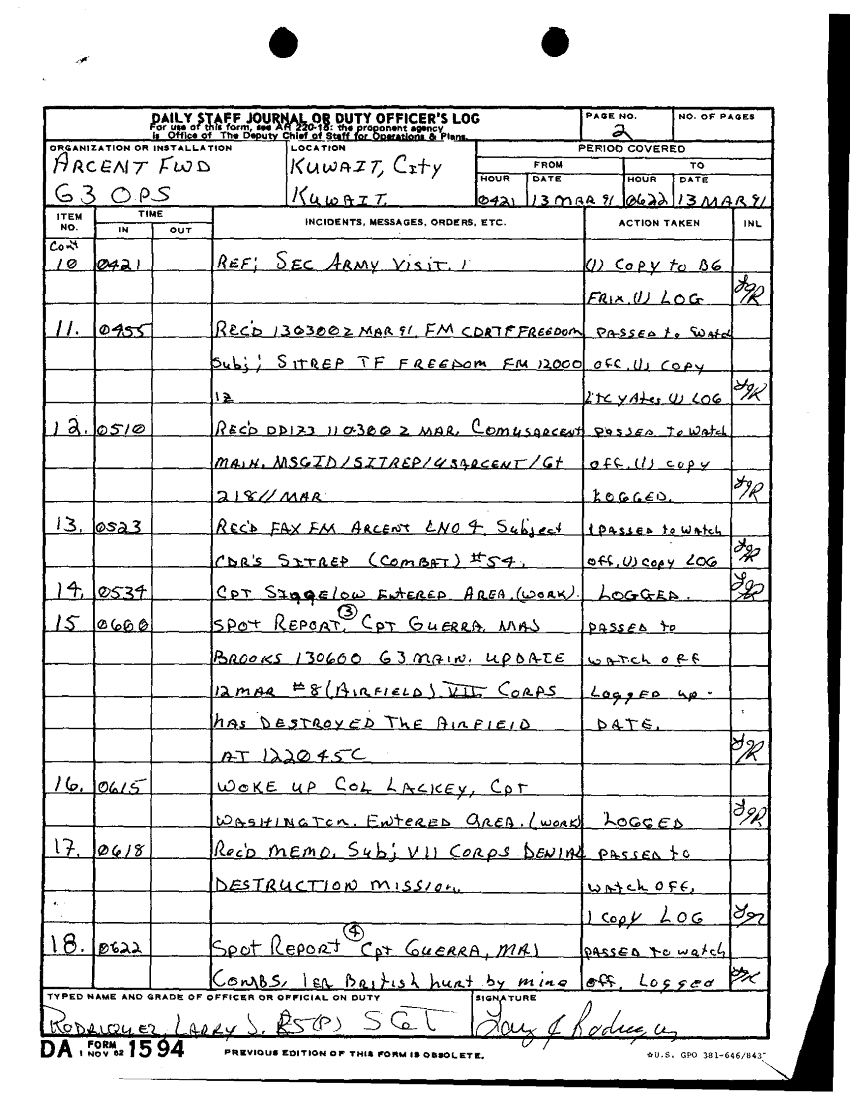 DAILY STAFF JOURNAL OR DUTY OFFICER'S LOG
For use of this form, see AR 220-15; the proponent agency
is Office of The Deputy Chief of Staff for Operations & Plans.
PAGE NO.
2
NO. OF PAGES
ORGANIZATION OR INSTALLATION
ARCENT FWD
G3 OPS
LOCATION
KUWAIT, CITY
KUWAIT.
PERIOD COVERED
FROM
TO
HOUR DATE HOUR DATE
0421 13 MAR 91 0622 13 MAR 91
ITEM NO.
TIME
IN OUT
INCIDENTS, MESSAGES, ORDERS, ETC.
ACTION TAKEN
INL
Con't
10 0421 REF; SEC ARMY VISIT. 1 (1) COPY TO BG
FRIX, (1) LOG
11. 0455 REC'D 130300Z MAR 91, FM CDRTF FREEDOM PASSED to WATCH
Subj; SITREP TF FREEDOM FM 12000 OFF, (1) COPY
12 LTC YATES (1) LOG
12. 0510 REC'D DD123 110300Z MAR, COMUSARCENT PASSED TO WATCH
MAIN. MSGID/SITREP/USARCENT/G+ OFF. (1) COPY
218//MAR LOGGED.
13. 0523 REC'D FAX FM ARCENT LNO 4, Subject 1 PASSED to WATCH
CDR'S SITREP (COMBAT) #54. OFF, (1) COPY LOG
14. 0534 CPT SIGGELOW ENTERED AREA. (WORK). LOGGED.
15 0600 SPOT REPORT, (3) CPT GUERRA, MAJ PASSED to
BROOKS 130600 G3 MAIN. UPDATE WATCH OFF
12 MAR #8 (AIRFIELD) VII CORPS LOGGED UP-
HAS DESTROYED THE AIRFIELD DATE.
AT 122045C
16. 0615 WOKE UP COL LACKEY, CPT
WASHINGTON. ENTERED AREA. (WORK) LOGGED
17. 0618 REC'D MEMO. Subj VII CORPS DENIAL PASSED to
DESTRUCTION MISSION. WATCH OFF,
1 COPY LOG
18. 0622 SPOT REPORT (4) CPT GUERRA, MAJ PASSED TO WATCH
COMBS, 1EA BRITISH hurt by mine OFF, LOGGED
TYPED NAME AND GRADE OF OFFICER OR OFFICIAL ON DUTY
RODRIQUEZ, LARRY J. E5(P) SGT
SIGNATURE
Larry J Rodriquez
DA FORM 1 NOV 62 1594
PREVIOUS EDITION OF THIS FORM IS OBSOLETE.
☆U.S. GPO 381-646/843